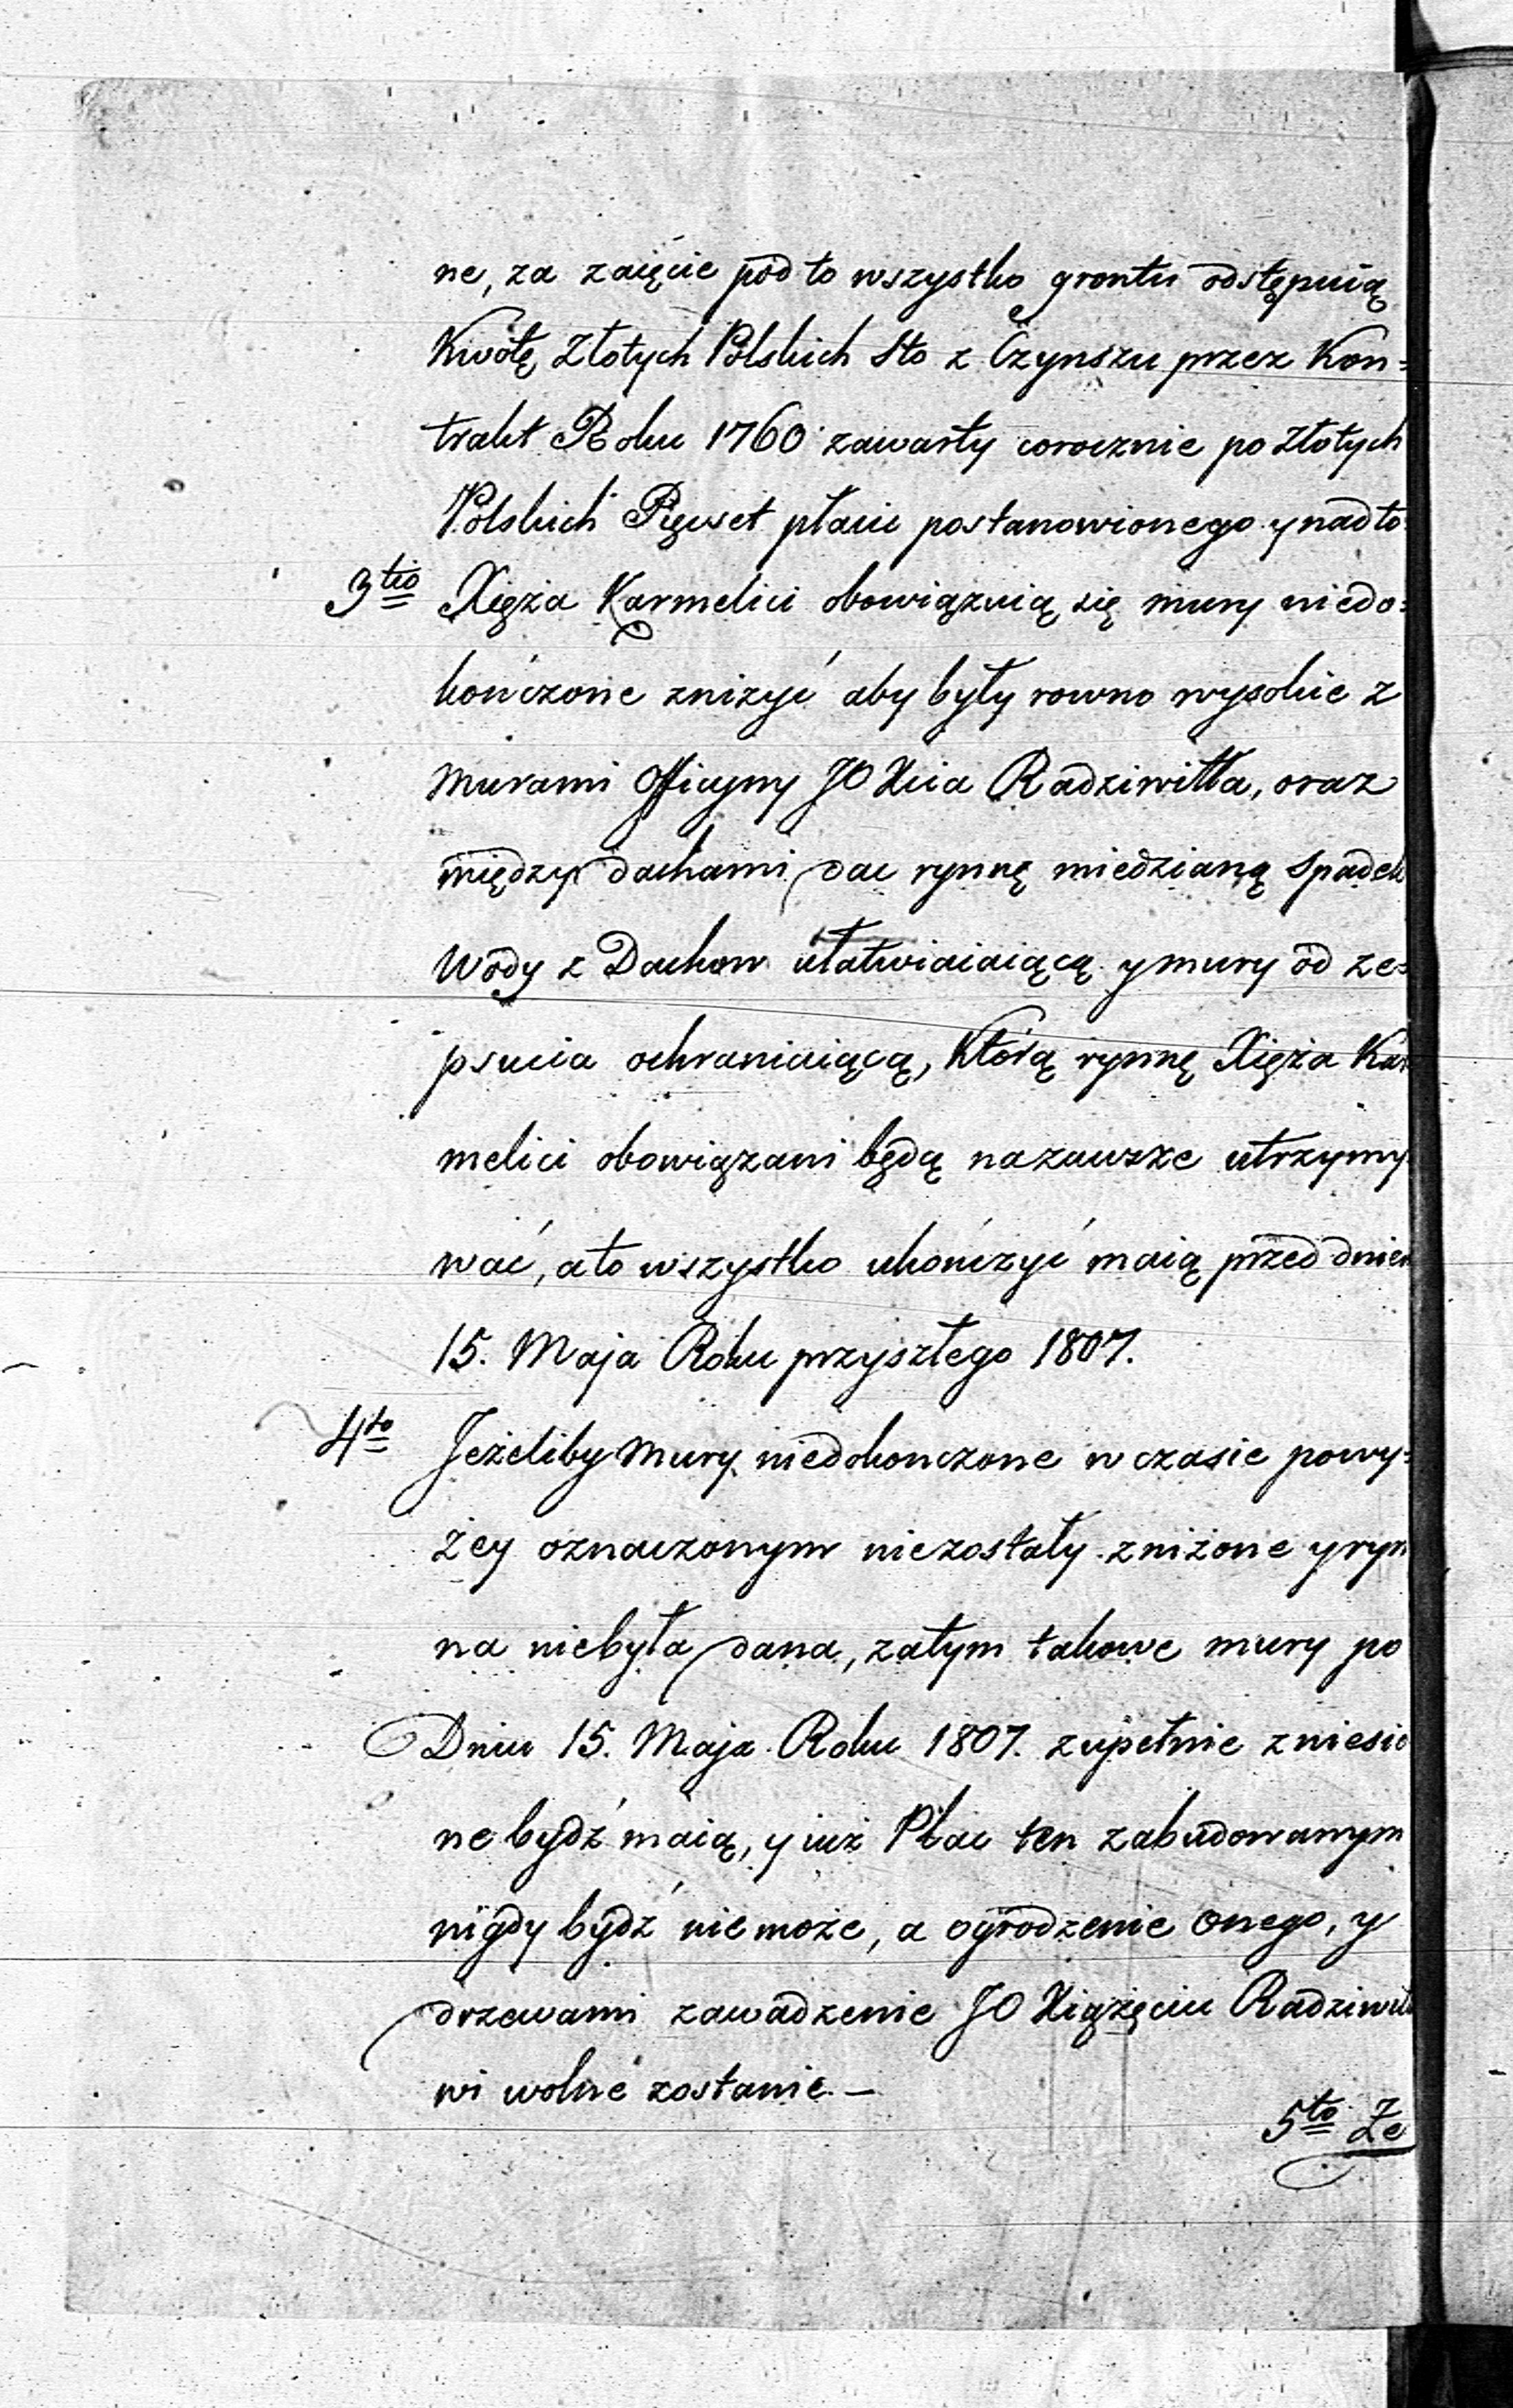 ne, za zaięcie pod to wszystko grontu odstępuią
Kwotę Złotych Polskich Sto z Czynszu przez Kon=
trakt Roku 1760 zawarty corocznie po Złotych
Polskich Pięcset płacic postanowionego y nadto
3tio Xięża Karmelici obowiązuią się mury niedo=
kończone zniżyć aby były rowno wysokie z
murami Officyny JO Xcia Radziwiłła, oraz
między dachami dac rynnę miedzianą Spadek
Wody z Dachow ułatwiaiaiącą y mury od ze=
psucia ochraniaiącą, Którą rynnę Xięża Kar
melici obowiązani będą nazawsze utrzymy
wać, a to wszystko ukończyć maią przed dniem
15. Maja Roku przyszłego 1807.
4to Jeżeliby Mury niedokonczone w czasie powy=
żey oznaczonym niezostały zniżone y ryn
na niebyła dana, zatym takowe mury po
Dniu 15. Maja Roku 1807. zupełnie zniesio
ne bydź maią, y iuż Plac ten zabudowanym
nigdy bydź nie może, a ogrodzenie onego, y
drzewami zawadzenie JO Xiążęciu Radziwiłło
wi wolne zostanie. —
5to Ze